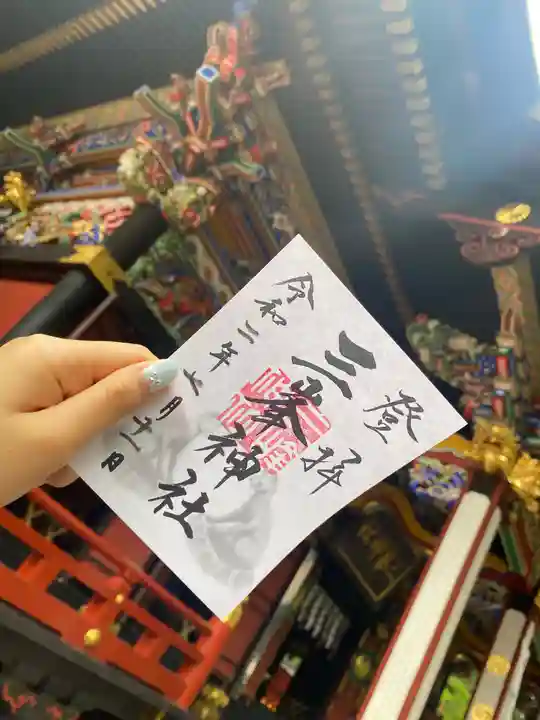 登拝
三峯神社
令和二年七月十一日